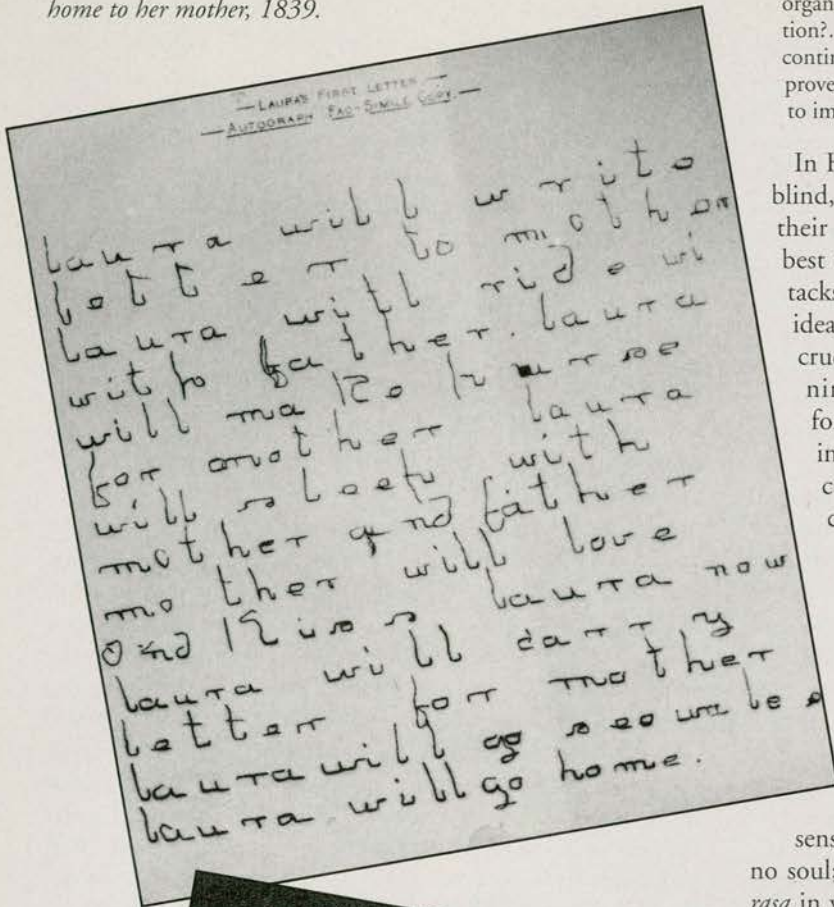 home to her mother, 1839.
— LAURA'S FIRST LETTER. —
— AUTOGRAPH FAC-SIMILE COPY. —
laura will write
letter to mother
laura will ride wi
with father. laura
will make purse
for mother laura
will sleep with
mother and father
mother will love
and kiss laura now
laura will carry
letter for mother
laura will go
laura will go home.
organ
tion?.
contin
prove
to im
In
blind,
their
best
tacks
idea
cruc
nin
fo
in
c
sens
no soul;
rasa in